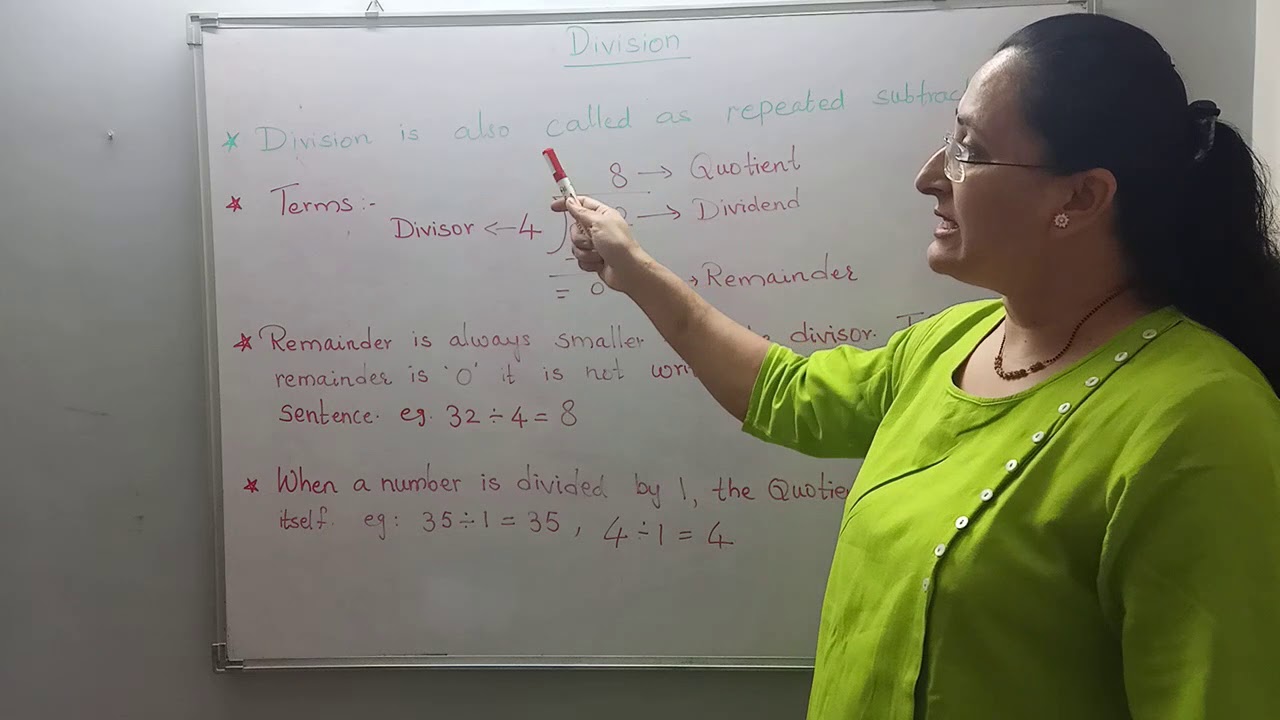 Division
* Division is also called as repeated subtrac
8 → Quotient
* Terms:- Divisor ← 4 → Dividend
= 0 → Remainder
* Remainder is always smaller divisor.
remainder is '0' it is not
sentence. eg. 32 ÷ 4 = 8
* When a number is divided by 1, the Quotie
itself. eg: 35 ÷ 1 = 35 , 4 ÷ 1 = 4